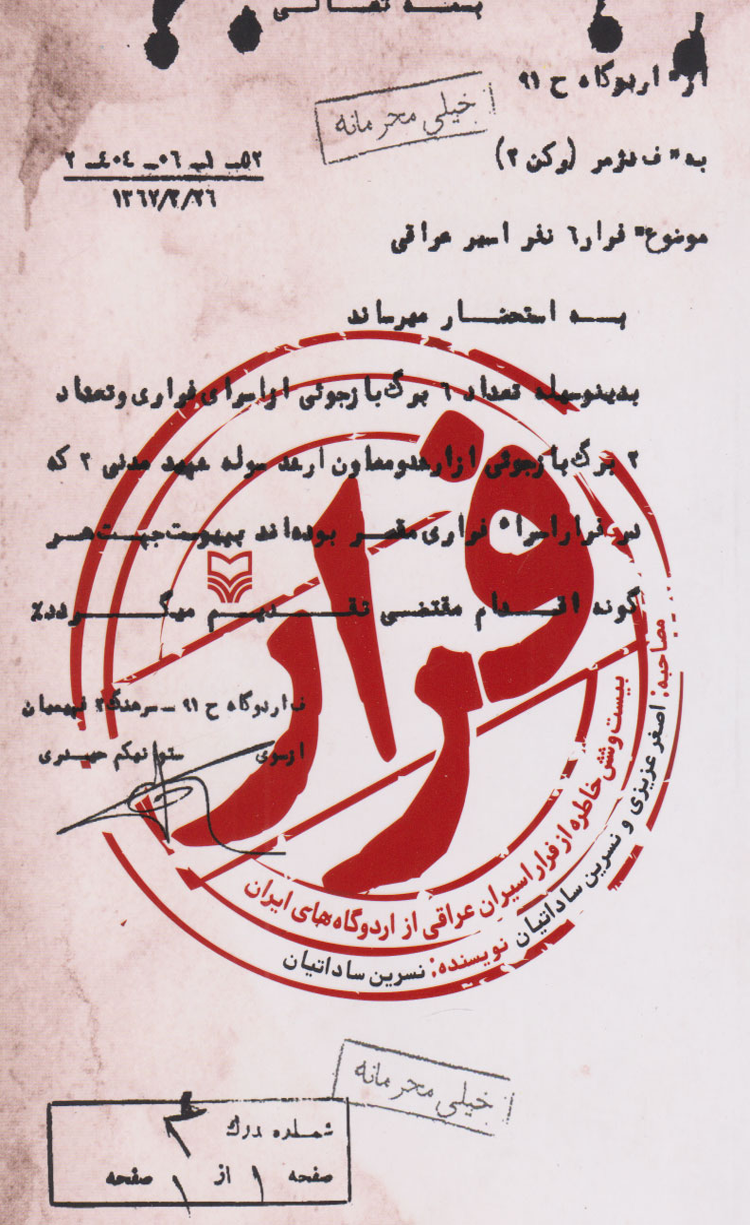 بسمه تعالی
از" اردوگاه ح ۹۱
خیلی محرمانه
۱۳٦۷/۲/۲٦
به" ف دژمر (رکن ۲)
موضوع" فرار ٦ نفر اسیر عراقی
بــه استحضــار میرساند
بدینوسیله تعداد ٦ برگ بازجوئی ازاسرای فراری وتعداد
۲ برگ بازجوئی ازارشدومعاون ارشد سوله شهید مدنی ۲ که
در فراراسراء فراری مقصر بوده‌اند بپیوست جهت هر
گونه اقــدام مقتضی تقــدیــم میگــردد٪
ف اردوگاه ح ۹۱ ــ سرهنگ۲ فهیمیان
ازسوی ستوانیکم حیدری
فرار
بیست و شش خاطره از فرار اسیران عراقی از اردوگاه‌های ایران
مصاحبه: اصغر عزیزی و نسرین ساداتیان
نویسنده: نسرین ساداتیان
خیلی محرمانه
شماره درک
صفحه ۱ از ۱ صفحه